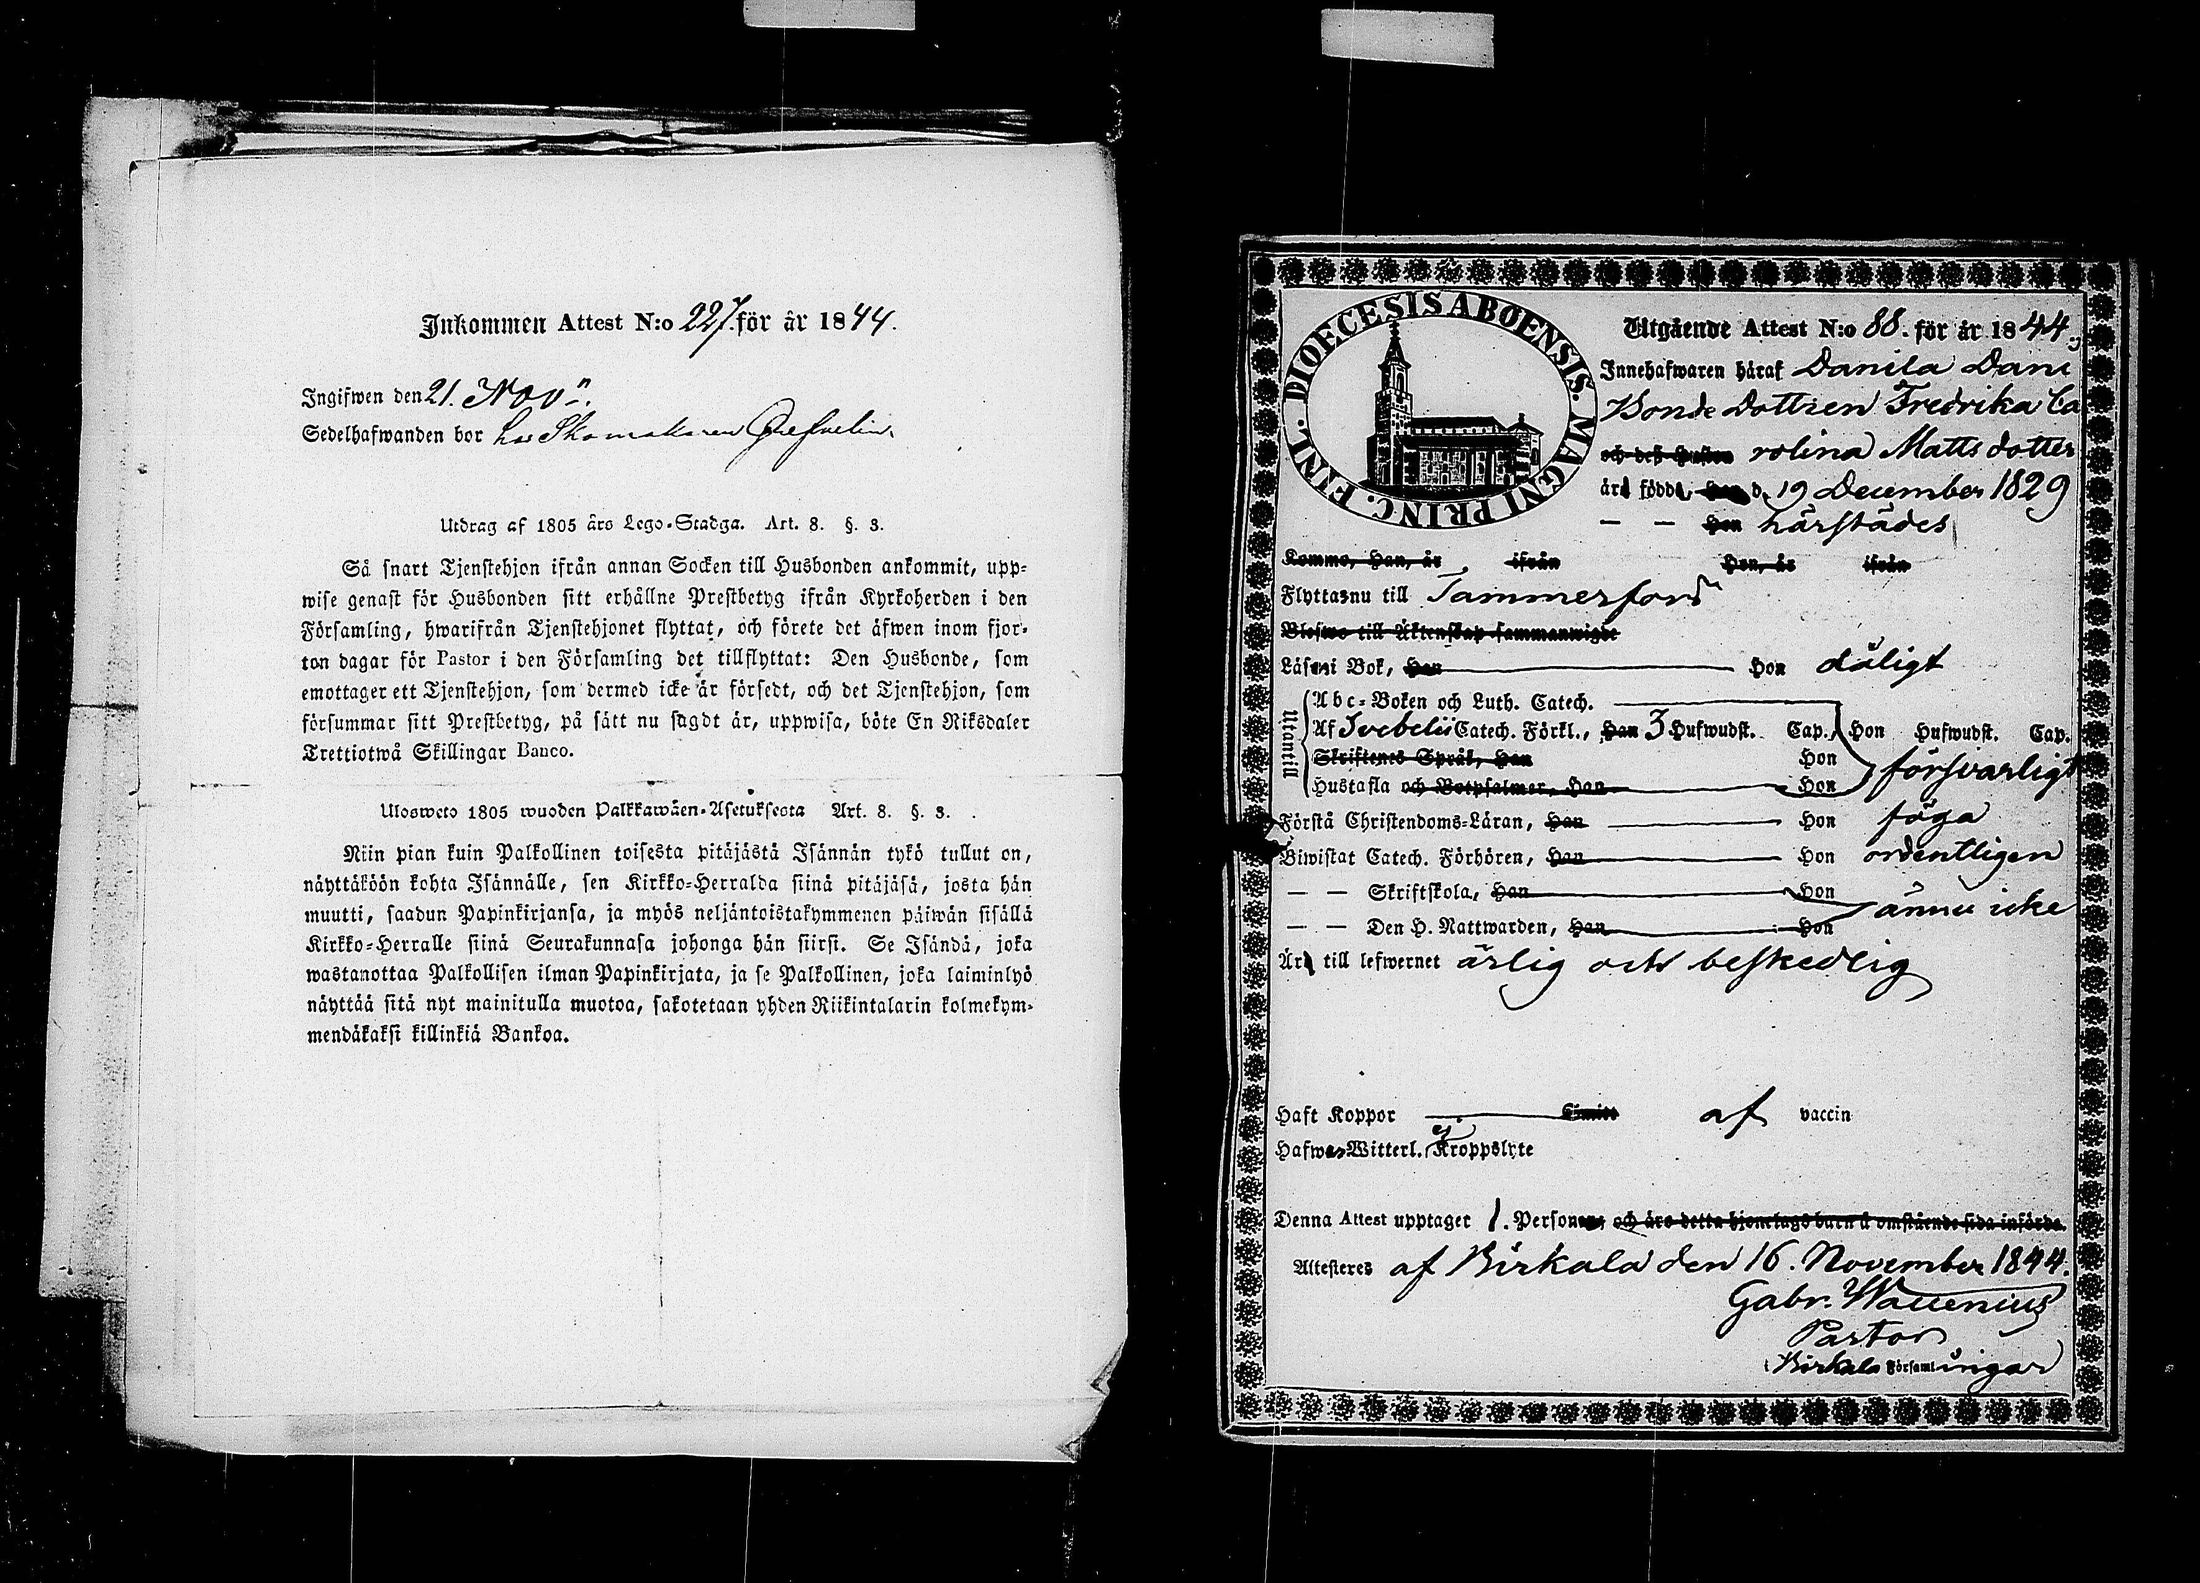 Inkommen Attest N:o 227. för år 1844.
Ingifwen den 21. Nov:n.
Sedelhafwanden bor hos Skomakaren
Utdrag af 1805 års Lego-Stadga. Art. 8. §. 3.
Så snart Tjenstehjon ifrån annan Socken till Husbonden ankommit, upp-
wise genast för Husbonden sitt erhållne Prestbetyg ifrån Kyrkoherden i den
Församling, hwarifrån Tjenstehjonet flyttat, och förete det äfwen inom fjor-
ton dagar för Pastor i den Församling det tillflyttat: Den Husbonde, som
emottager ett Tjenstehjon, som dermed icke är försedt, och det Tjenstehjon, som
försummar sitt Prestbetyg, på sätt nu sagdt är, uppwisa, böte En Riksdaler
Trettiotwå Skillingar Banco.
Ulosweto 1805 wuoden Palkkawäen-Asetuksesta Art. 8. §. 3.
Niin pian kuin Palkollinen toisesta pitäjästä Isännän tykö tullut on,
näyttäköön kohta Isännälle, sen Kirkko-Herralda siinä pitäjäsä, josta hän
muutti, saadun Papinkirjansa, ja myös neljäntoistakymmenen päiwän sisällä
Kirkko-Herralle siinä Seurakunnasa johonga hän siirsi. Se Isändä, joka
wastanottaa Palkollisen ilman Papinkirjata, ja se Palkollinen, joka laiminlyö
näyttää sitä nyt mainitulla muotoa, sakotetaan yhden Riikintalarin kolmekym-
mendäkaksi killinkiä Bankoa.
DIOECESIS ABOENSIS. MAGNI PRINC. FINL.
Utgående Attest N:o 88. för år 1844.
Innehafwaren häraf Danila Dani
Bonde Dottren Fredrika Ca
och deß Hustru rolina Matts dotter
är född, Han d. 19 December 1829
— — Hon härstädes
Komme, Han, år ifrån Hon, år ifrån
Flytta nu till Tammerfors
Blefwo till Äktenskap sammanwigde
Läser i Bok, Han Hon dåligt
Utantill
Abc-Boken och Luth. Catech.
Af Svebelii Catech. Förkl., Han 3 Hufwudst. Cap. Hon Hufwudst. Cap.
Skriftenes Språk, Han Hon försvarligt
Hustafla och Botpsalmer, Han Hon
Förstå Christendoms-Läran, Han Hon föga
Biwistat Catech. Förhören, Han Hon ordentligen
— — Skriftskola, Han Hon ännu icke
— — Den H. Nattwarden, Han Hon
Är till lefwernet ärlig och beskedlig
Haft Koppor af vaccin
Hafwa Witterl. ej Kroppslyte
Denna Attest upptager 1. Person och äro detta hjonelags barn å omstående sida införde.
Attesteres af Birkala den 16. November 1844.
Gabr. Wallenius
Pastor
i Birkala Församlingar